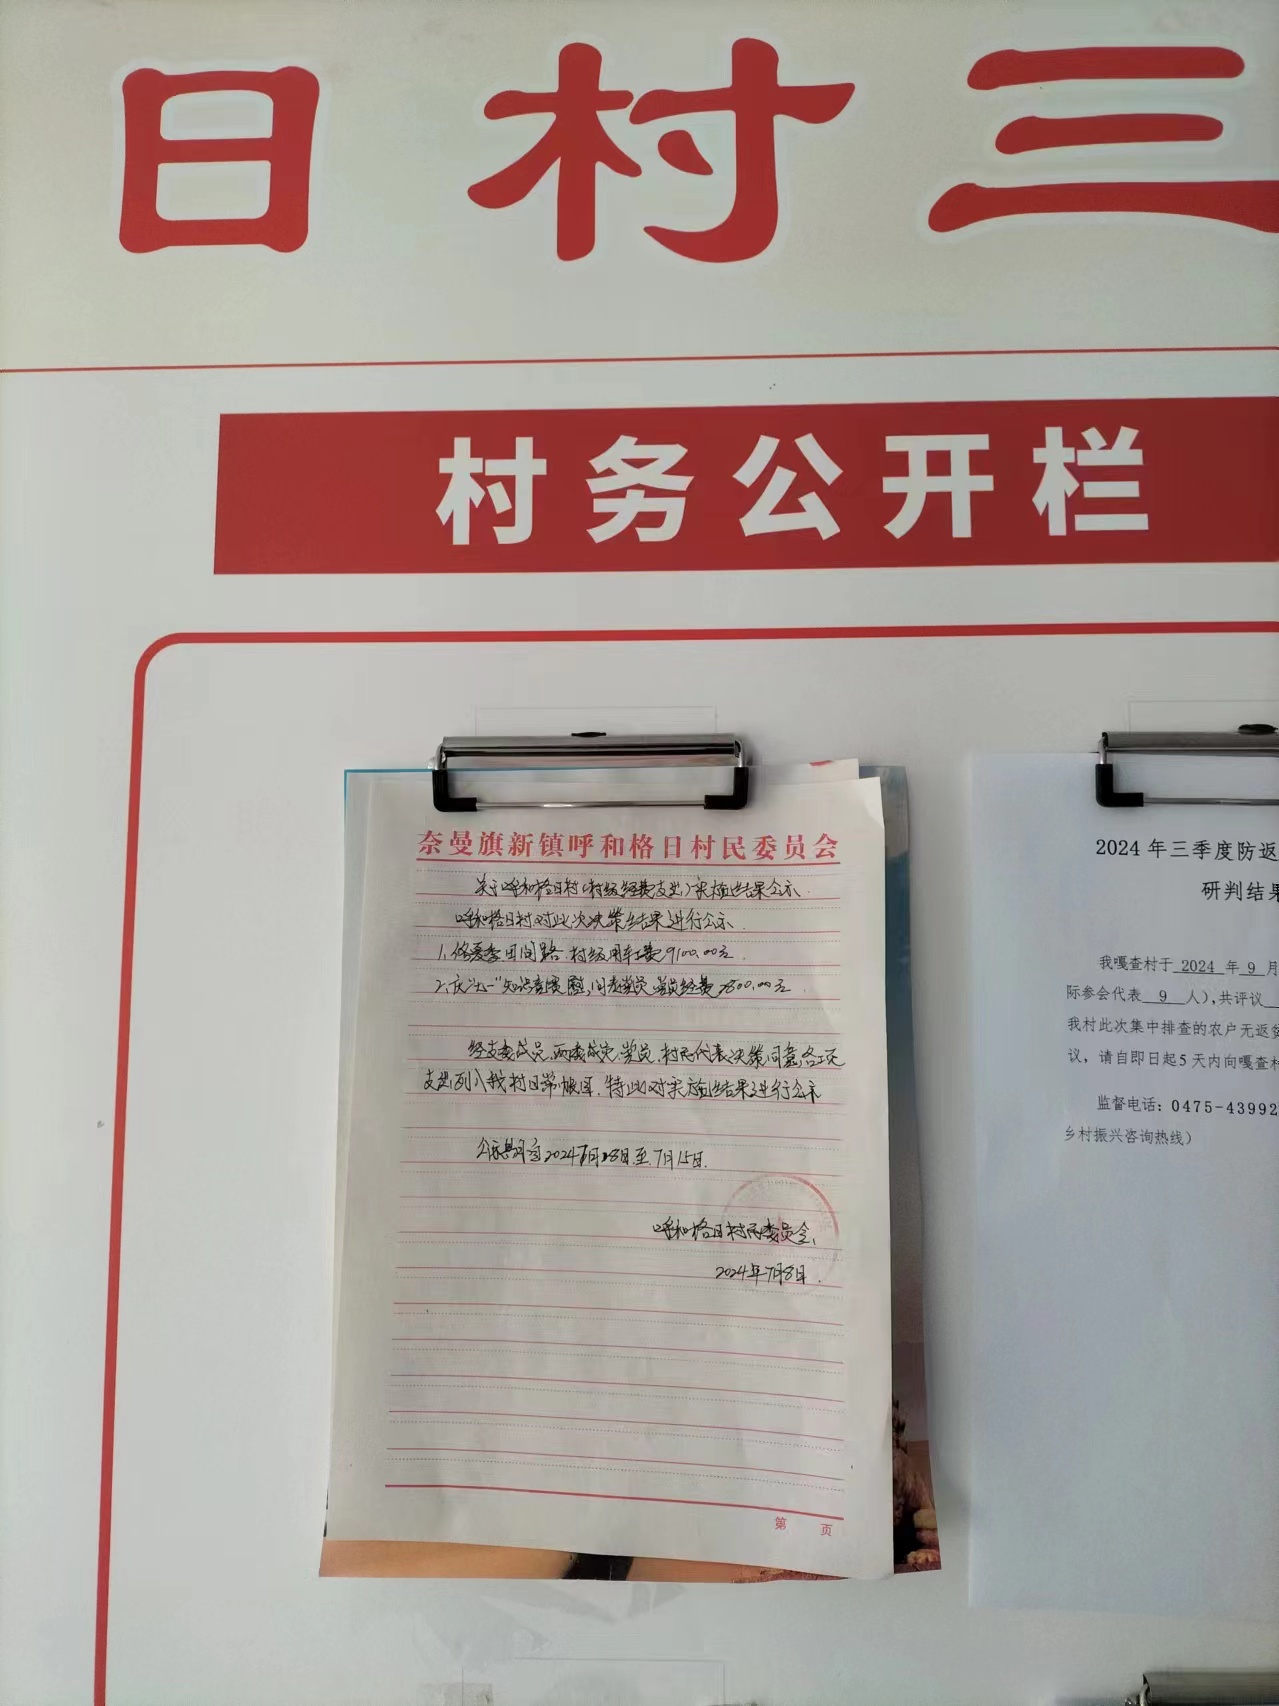 日村三
村务公开栏
奈曼旗新镇呼和格日村民委员会
关于呼和格日村(村级经费支出)实施结果公示
呼和格日村对此次决策结果进行公示
1.修夏季田间路.村级用车费9100.00元
2.庆"七一"知识竞赛 慰问老党员党员经费
经支委成员.两委成员.党员.村民代表决策同意各项
支出列入我村日常账目.特此对实施结果进行公示
公示期自2024年7月8日至7月15日.
呼和格日村民委员会
2024年7月8日
第 页
2024 年三季度防返
研判结果
我嘎查村于 2024 年 9 月
际参会代表 9 人),共评议
我村此次集中排查的农户无返贫
议，请自即日起5天内向嘎查村
监督电话：0475-43992
乡村振兴咨询热线）